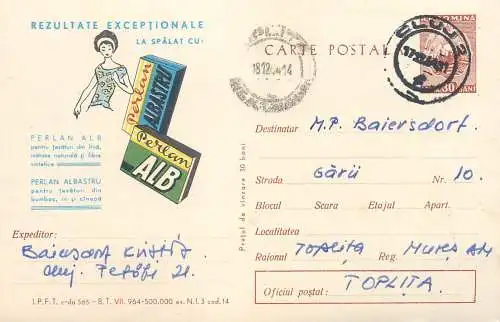 REZULTATE EXCEPȚIONALE
LA SPĂLAT CU:
Perlan
ALBASTRU
Perlan
ALB
PERLAN ALB
pentru țesături din lînă,
mătase naturală și fibre
sintetice
PERLAN ALBASTRU
pentru țesături din
bumbac, in și cînepă
Expeditor:
Cluj.
I.P.F.T. c-da 565 - B.T. VII. 964-500.000 ex. N.I. 3 cod. 14
Prețul de vînzare 30 bani
CARTE POSTAL
18.12
CLUJ
ROMINA
30 BANI
Destinatar M.P. Baiersdorf
Strada Gării Nr. 10.
Blocul Scara Etajul Apart.
Localitatea
Raional Toplița Reg. Mureș AM
Oficiul poștal: TOPLIȚA